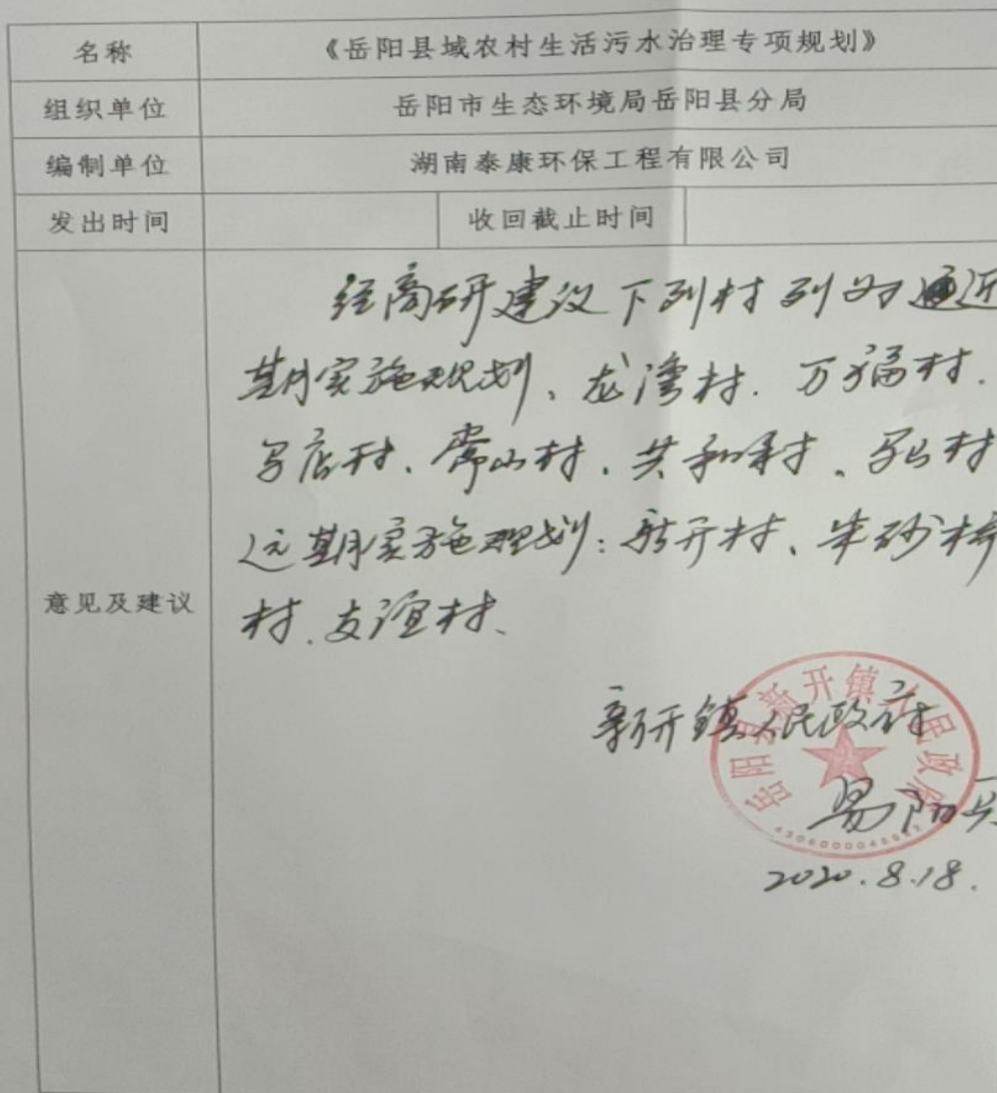 名称 《岳阳县域农村生活污水治理专项规划》
组织单位 岳阳市生态环境局岳阳县分局
编制单位 湖南泰康环保工程有限公司
发出时间 收回截止时间
意见及建议
经商研建议下列村列为近
期实施规划、龙湾村.万福村.
店村、常山村、共和村、村
远期实施规划:新开村、朱砂桥
村、友谊村、
新开镇人民政府
岳阳县新开镇人民政府
易阳
2020.8.18.